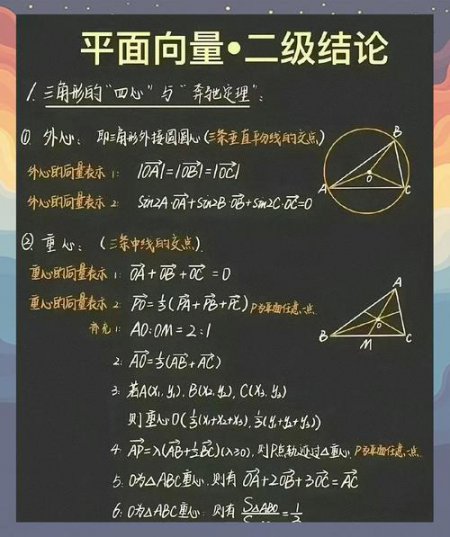 平面向量•二级结论
1. 三角形的"四心"与"奔驰定理":
① 外心: 即三角形外接圆圆心(三条垂直平分线的交点)
外心的向量表示 1: |OA|=|OB|=|OC|
外心的向量表示 2: Sin2A·OA+Sin2B·OB+Sin2C·OC=0
A
B
C
O
② 重心: (三条中线的交点)
重心的向量表示 1: OA+OB+OC=0
重心的向量表示 2: PO=1/3(PA+PB+PC) P为平面任意一点
补充 1: AO:OM=2:1
A
B
M
C
O
2. AO=1/3(AB+AC)
3. 若A(x₁,y₁), B(x₂,y₂), C(x₃,y₃)
则重心O(1/3(x₁+x₂+x₃), 1/3(y₁+y₂+y₃))
4. AP=λ(AB+1/2BC)(λ≥0), 则P点轨迹过△重心, P为平面任意一点
5. O为△ABC重心, 则有 OA+2OB+3OC=AC
6. O为△ABC重心 则有 S△ABO = 1